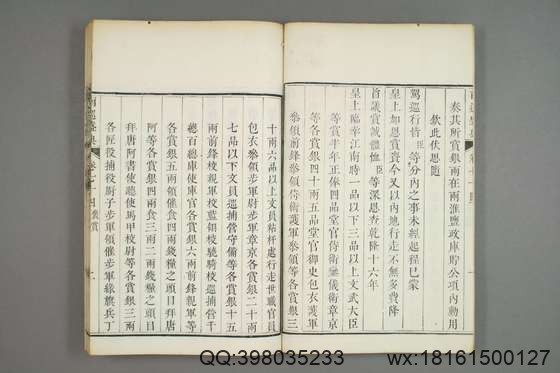 奏其所賞銀兩在兩淮鹽政庫貯公項內動用
欽此伏思隨
駕巡行皆臣等分內之事未經起程已蒙
皇上加恩賞賚今又以內地行走不無多費降
旨議賞誠體恤臣等深恩查乾隆十六年
皇上臨幸江南時一品以下三品以上文武大臣
等賞半年正俸四品堂官侍衛鑾儀衛章京
等各賞銀四十兩五品堂官御史包衣護軍
參領前鋒參領侍衛護軍參領等各賞銀三
十兩六品以上文員粘杆處行走世職官員
包衣參領步軍尉步軍章京各賞銀二十兩
七品以下文員巡捕營守備等各賞銀十五
兩前鋒校親軍校藍翎校驍騎校巡捕營千
總百總庫使庫官各賞銀六兩親軍等
各賞銀五兩領催食四兩錢糧之頭目拜唐
阿等各賞銀四兩食三兩二兩錢糧之頭目
拜唐阿書使聽使馬甲校尉等各賞銀三兩
各匠役捕役廚子步軍領催步軍綠旗兵丁
QQ:398035233
wx:18161500127